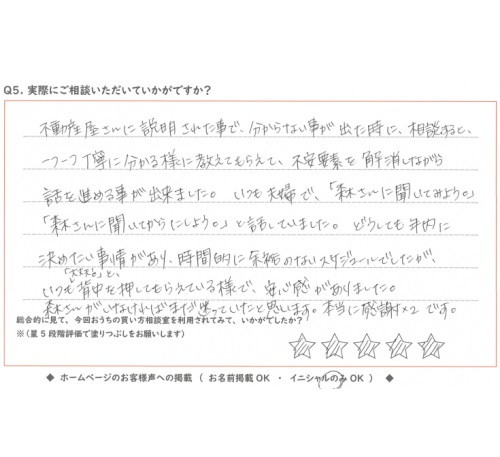 Q5. 実際にご相談いただいていかがですか?
不動産屋さんに説明された事で、分からない事が出た時に、相談すると、
一つ一つ丁寧に分かる様に教えてもらえて、不安要素を解消しながら
話を進める事が出来ました。いつも夫婦で、「森さんに聞いてみよう。」
「森さんに聞いてからにしよう。」と話していました。どうしても年内に
決めたい事情があり、時間的に余裕のないスケジュールでしたが、
「大丈夫」と、
いつも背中を押してもらえている様で、安心感がありました。
森さんがいなければまだ迷っていたと思います。本当に感謝×2です。
総合的に見て、今回おうちの買い方相談室を利用されてみて、いかがでしたか?
※(星5段階評価で塗りつぶしをお願いします)
◆ ホームページのお客様声への掲載 ( お名前掲載OK ・ イニシャルのみOK ) ◆